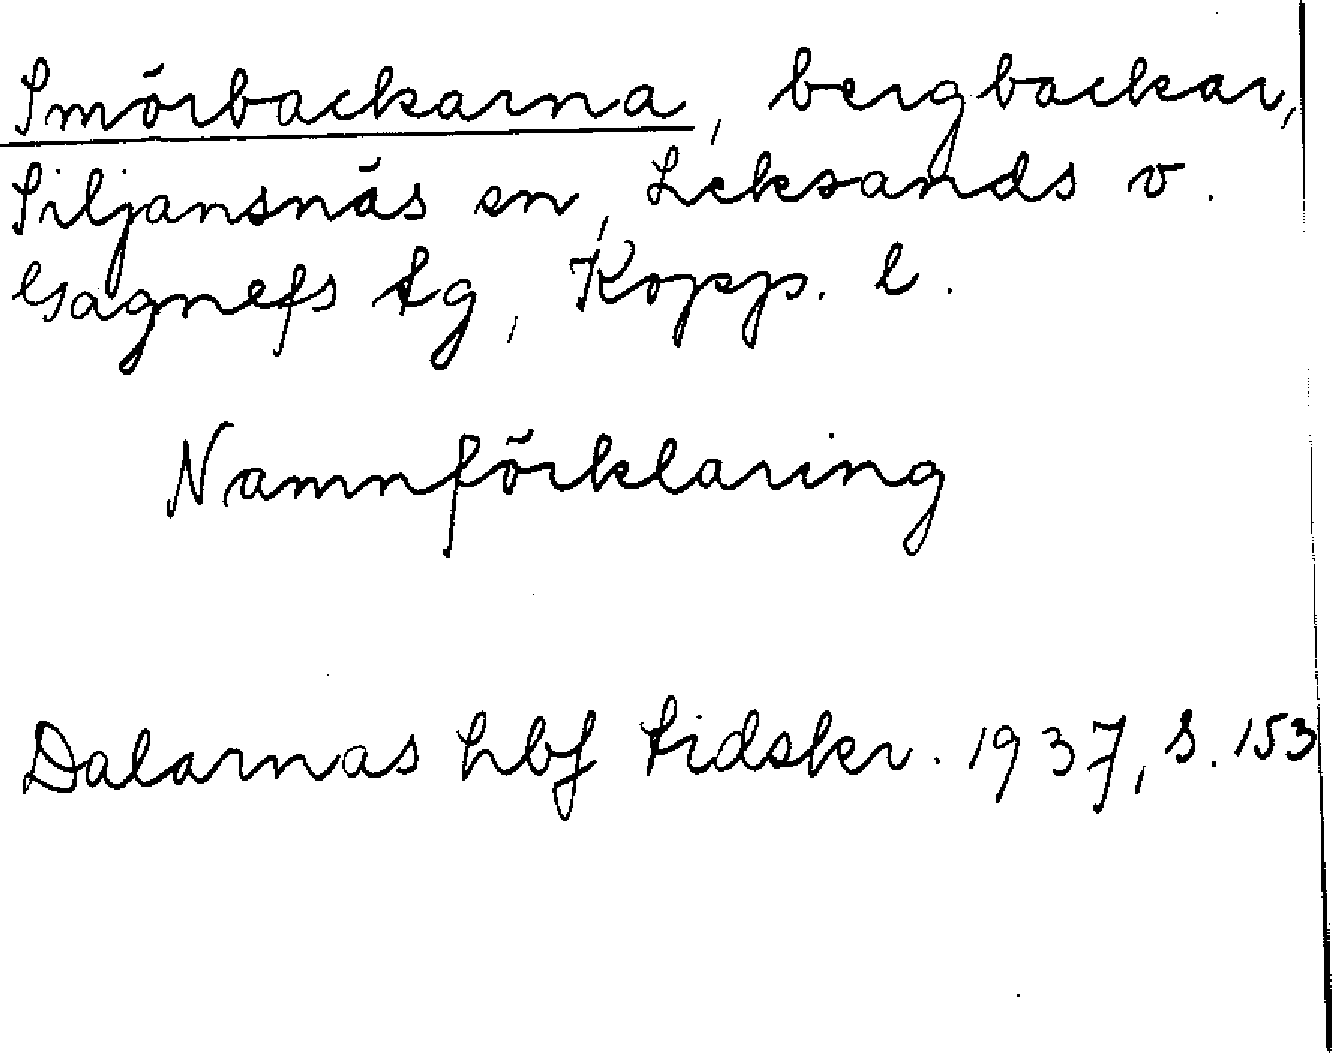 Smörbackarna, bergbackar,
Siljansnäs sn, Leksands o.
Gagnefs tg, Kopp. l.
Namnförklaring
Dalarnas hbf tidskr. 1937, s. 153